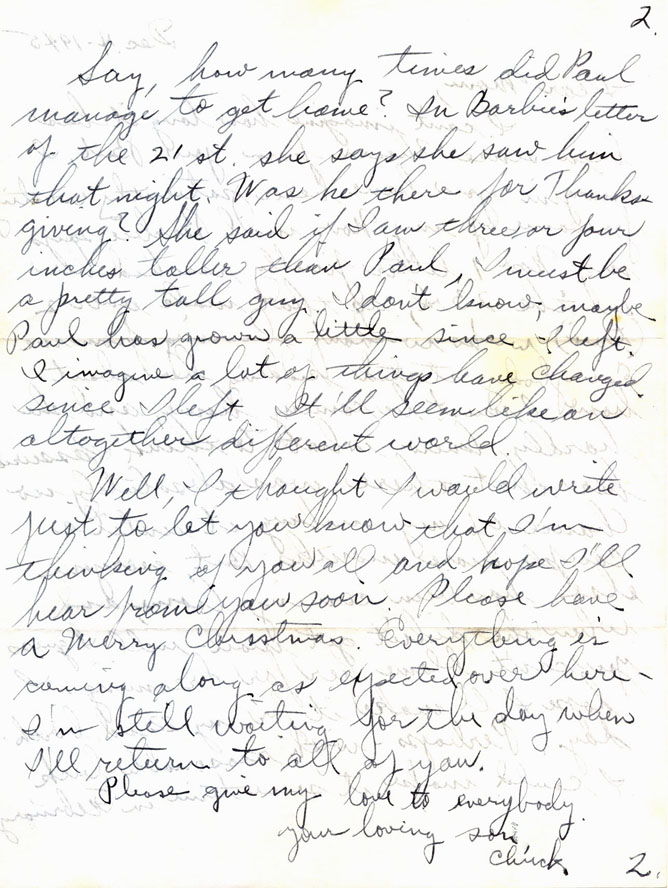 2.
Say, how many times did Paul
manage to get home? In Barbie's letter
of the 21st. she says she saw him
that night. Was he there for Thanks-
giving? She said if I am three or four
inches taller than Paul, I must be
a pretty tall guy. I don't know, maybe
Paul has grown a little since I left.
I imagine a lot of things have changed
since I left. It'll seem like an
altogether different world.
Well, I thought I would write
just to let you know that I'm
thinking of you all and hope I'll
hear from you soon. Please have
a Merry Christmas. Everything is
coming along as expected over here -
I'm still waiting for the day when
I'll return to all of you.
Please give my love to everybody.
Your loving son
Chuck
2.